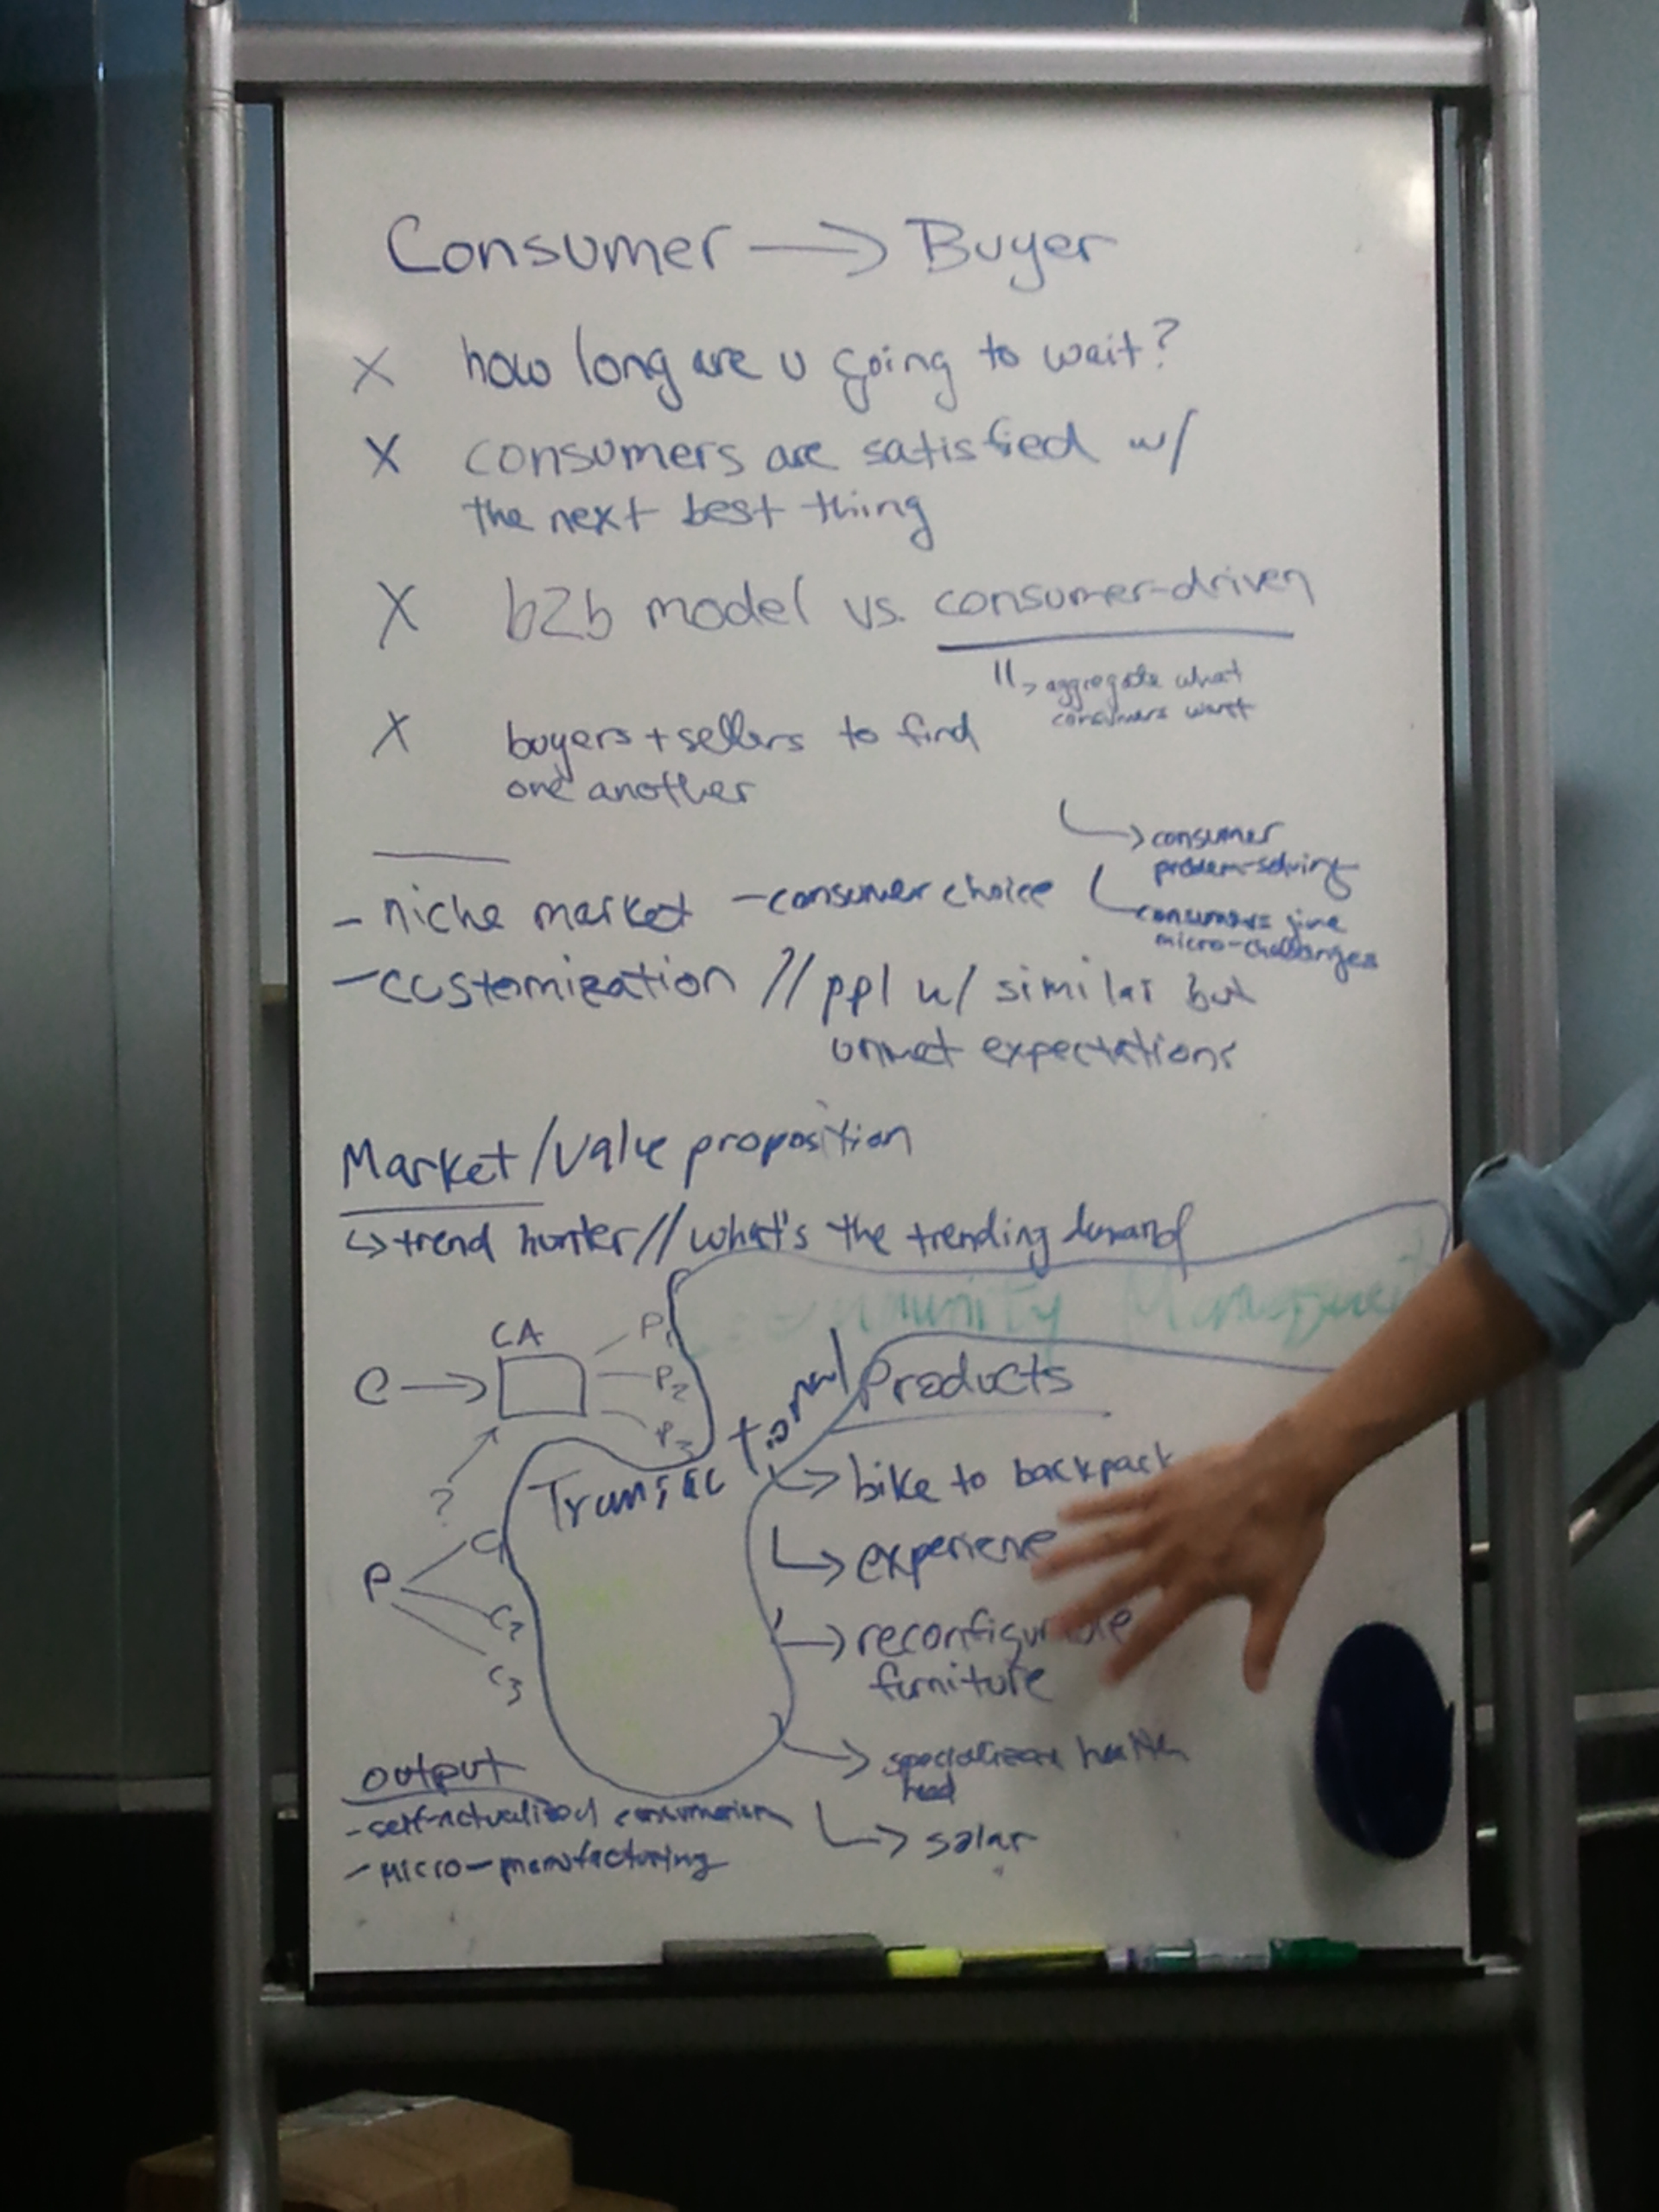 Consumer → Buyer
X how long are u going to wait?
X consumers are satisfied w/
the next best thing
X b2b model vs. consumer-driven
↳ aggregate what
consumers want
X buyers + sellers to find
one another
↳ consumer
problem-solving
- niche market - consumer choice
consumers give
micro-challenges
- customization // ppl w/ similar but
unmet expectations
Market/value proposition
↳ trend hunter // what's the trending demand
Community Management
CA
C →
P1
P2
P3
?
Transactional
P
C1
C2
C3
Products
→ bike to backpack
↳ experience
→ reconfigurable
furniture
→ specialized health
↳ solar
output
- self-actualized consumerism
- micro-manufacturing